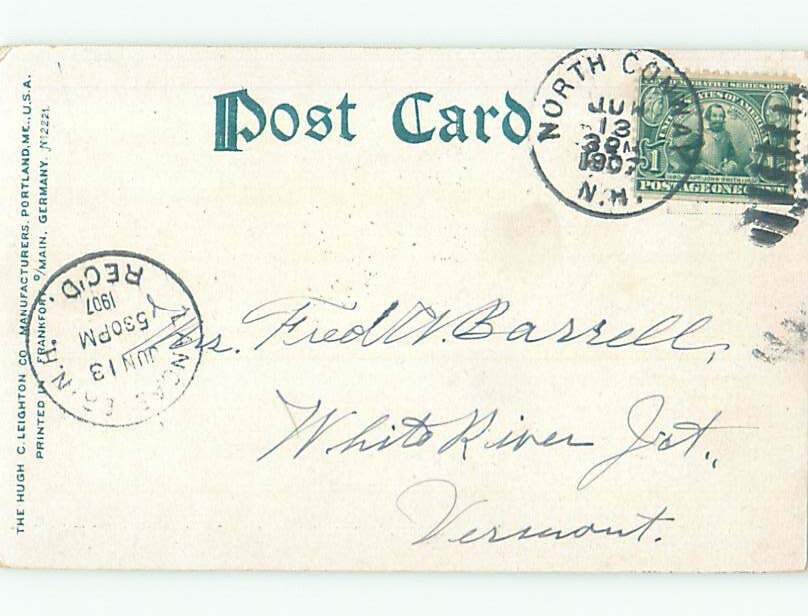 Post Card
NORTH CONWAY
JUN
13
3 PM
1907
N.H.
COMMEMORATIVE SERIES 1907
UNITED STATES OF AMERICA
1
CAPT. JOHN SMITH
POSTAGE ONE CENT
THE HUGH C. LEIGHTON CO. MANUFACTURERS. PORTLAND, ME., U.S.A.
PRINTED IN FRANKFORT o/MAIN. GERMANY. № 2221.
LANCASTER N.H.
JUN 13
530PM
1907
REC'D.
Mrs. Fred W. Barrell,
White River Jct.,
Vermont.